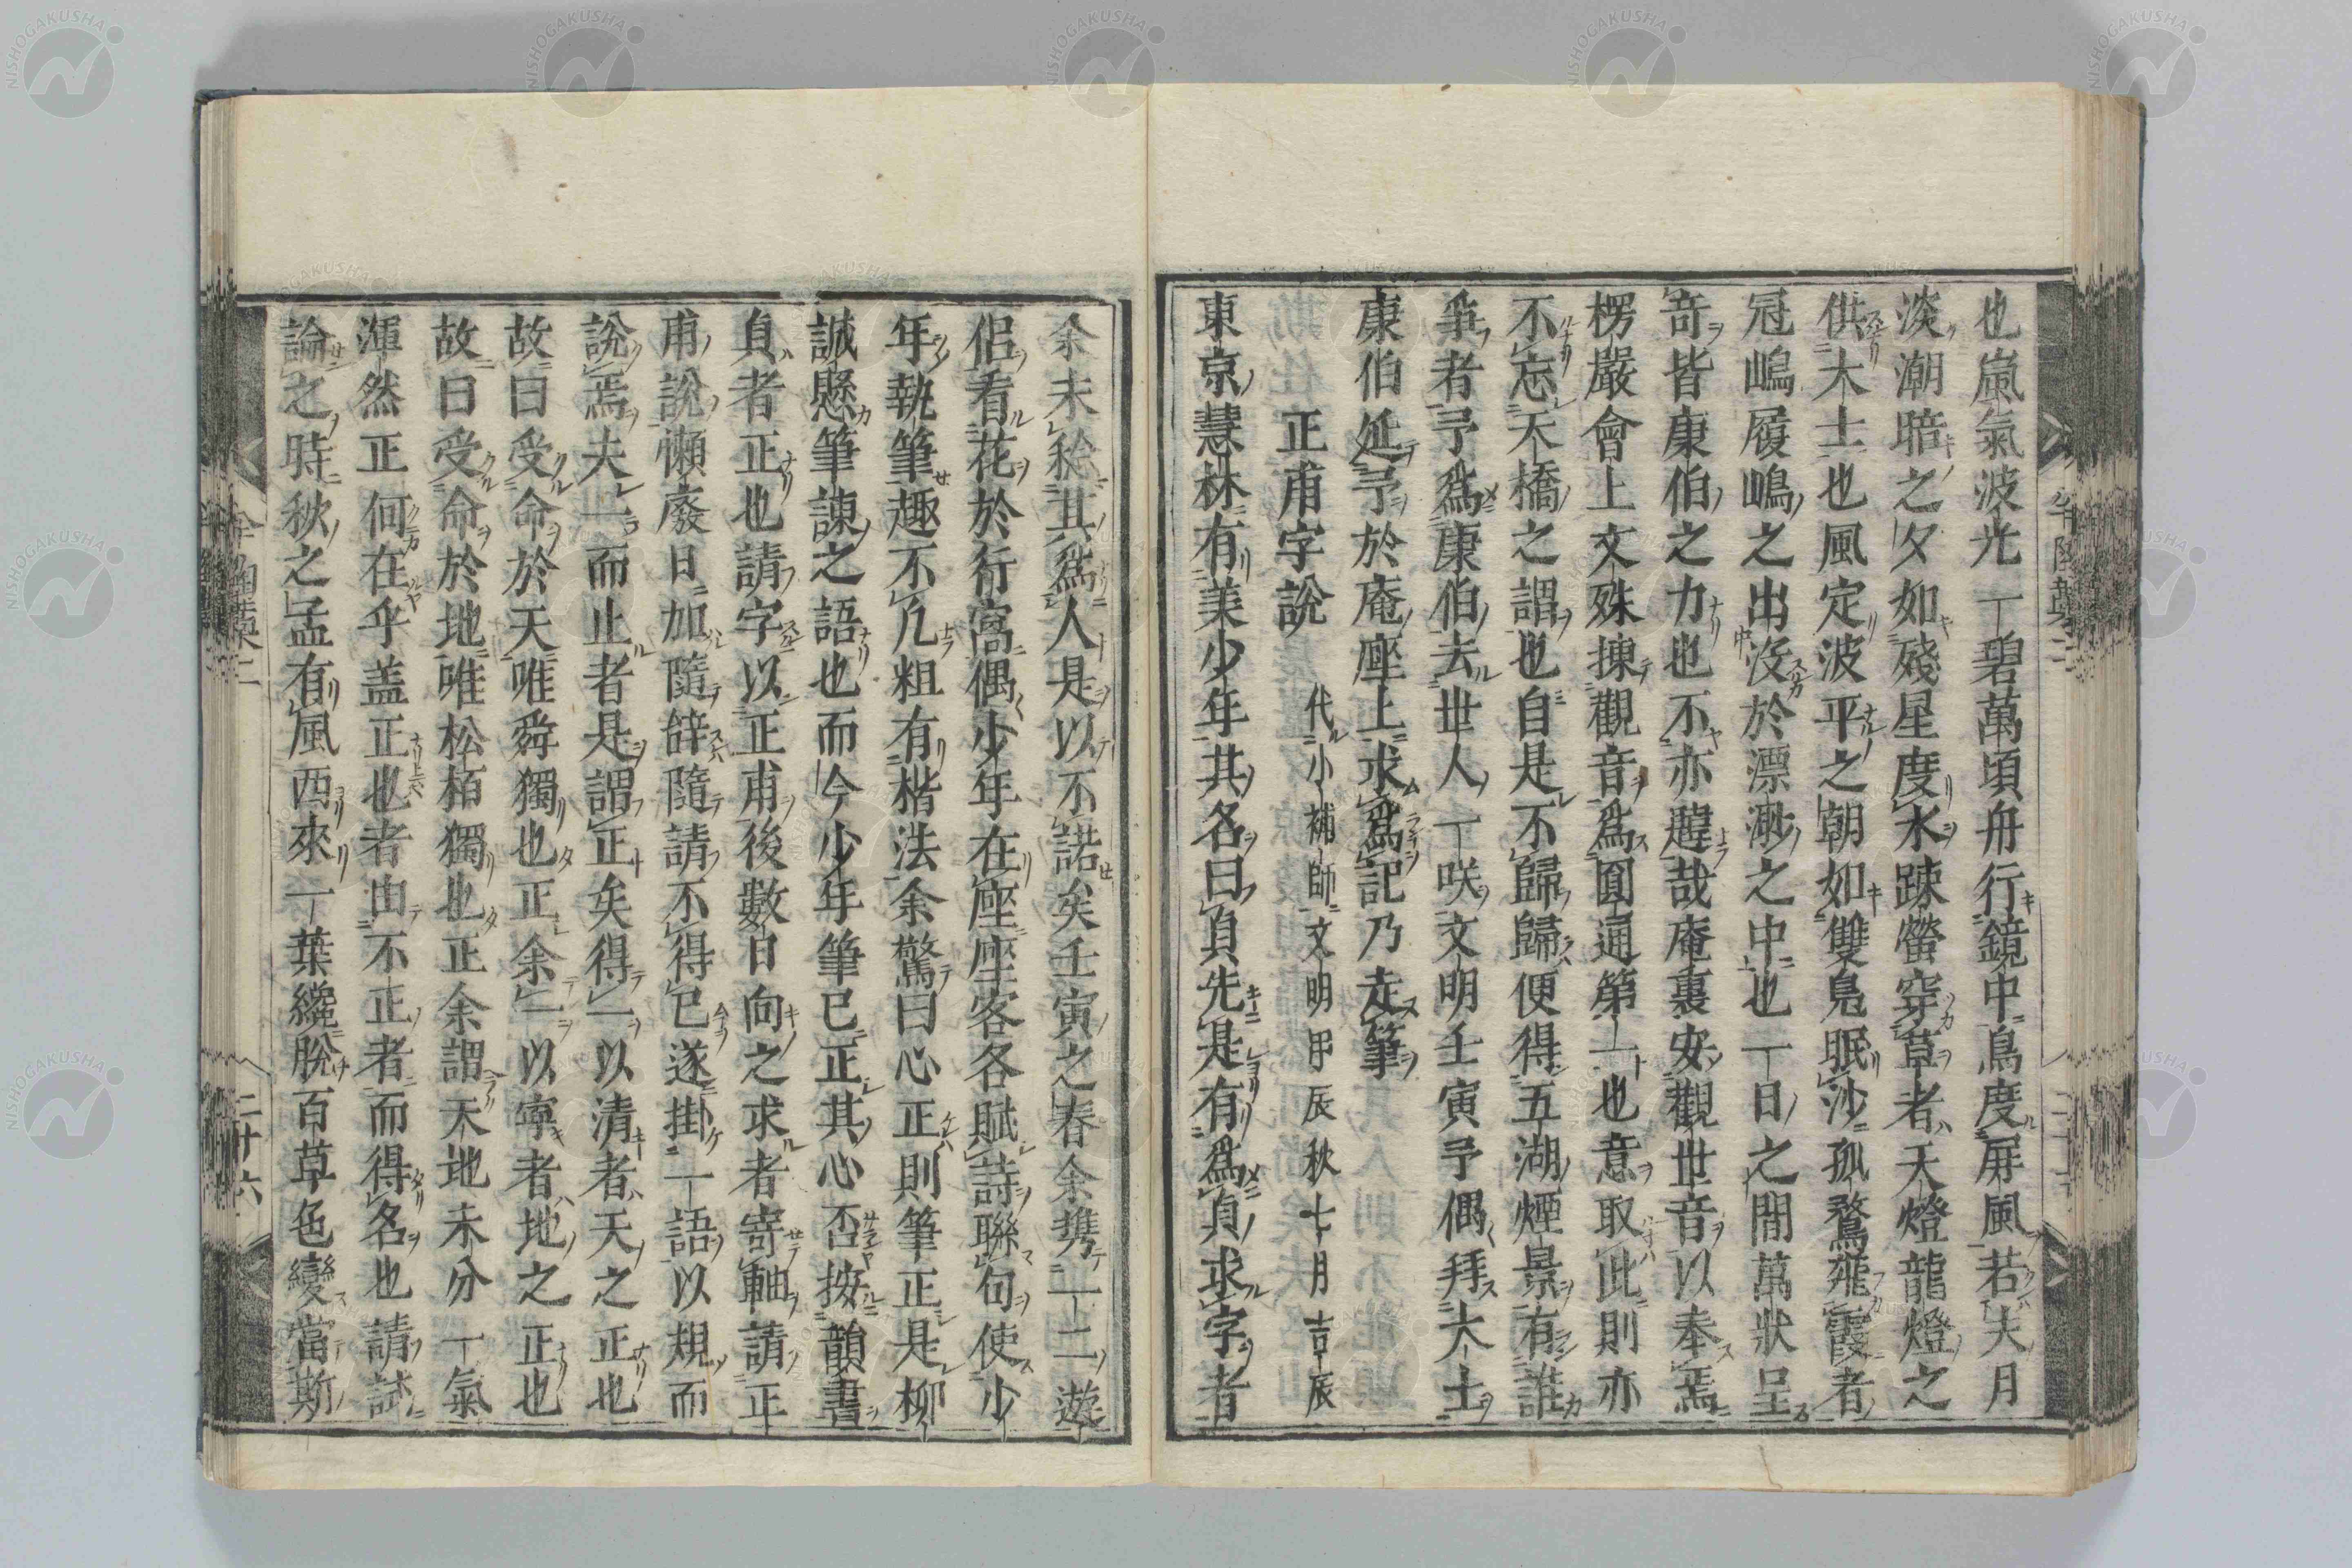 也嵐氣波光一碧萬頃舟行鏡中鳥度屏風若夫月
淡潮暗之夕如殘星度水踈螢穿草者天燈龍燈之
供大士也風定波平之朝如雙鳧眠沙孤鶩飛霞者
冠嶋履嶋之出沒於漂渺之中也一日之間萬狀呈
奇皆康伯之力也不亦韙哉庵裏安觀世音以奉焉
楞嚴會上文殊揀觀音爲圓通第一也意取此則亦
不忘天橋之謂也自是不歸歸便得五湖煙景有誰
爭者予爲康伯去世人一咲文明壬寅予偶拜大士
康伯延予於庵座上求爲記乃走筆
正甫字說 代小補師文明甲辰秋七月吉辰
東京慧林有美少年其名曰貞先是有爲貞求字者
余未稔其爲人是以不諾矣壬寅之春余携一二遊
侶看花於行窩偶少年在座座客各賦詩聯句使少
年執筆筆趣不凡粗有楷法余驚曰心正則筆正是柳
誠懸筆諫之語也而今少年筆已正其心否按韻書
貞者正也請字以正甫後數日向之求者寄軸請正
甫說懶廢日加隨辭隨請不得已遂掛一語以規而
說焉夫一而止者是謂正矣得一以清者天之正也
故曰受命於天唯舜獨也正余一以寧者地之正也
故曰受命於地唯松栢獨也正余謂天地未分一氣
渾然正何在乎盖正也者由不正者而得名也請試
論之時秋之孟有風西來一葉纔脫百草色變當斯
二十六